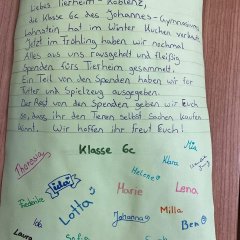 Liebes Tierheim-Koblenz,
die Klasse 6c des Johannes-Gymnasiums
Lahnstein hat im Winter Kuchen verkauft.
Jetzt im Frühling haben wir nochmal
Alles aus uns rausgeholt und fleißig
Spenden fürs Tierheim gesammelt.
Ein Teil von den Spenden haben wir für
Futter und Spielzeug ausgegeben.
Der Rest von den Spenden geben wir Euch
so, dass ihr den Tieren selbst Sachen kaufen
könnt. Wir hoffen ihr freut Euch!
Klasse 6c
Theresia
Mia
Klara
Helene
Frederike
Ida
Marie
Lena
Lotta
Johanna
Milla
Ben
Laura
Sofia
Sarah